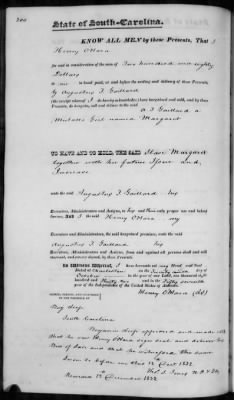 State of South-Carolina.
KNOW ALL MEN by these Presents, That I
Henry O'Hara
for and in consideration of the sum of Two hundred and eighty
Dollars
to me in hand paid, at and before the sealing and delivery of these Presents,
by Augustus T. Gaillard
(the receipt whereof I do hereby acknowledge) have bargained and sold, and by these
Presents, do bargain, sell and deliver to the said A T Gaillard a
Mulatto Girl named Margaret
TO HAVE AND TO HOLD, THE SAID Slave Margaret
together with her future Issue and
Increase
unto the said Augustus T. Gaillard his
Executors, Administrators and Assigns, to his and their only proper use and behoof
forever. AND I the said Henry O'Hara my
Executors, Administrators, the said bargained premises, unto the said
Augustus T. Gaillard his
Executors, Administrators and Assigns, from and against all persons shall and will
warrant, and forever defend, by these Presents.
IN WITNESS WHEREOF, I have hereunto set my Hand and Seal
Dated at Charleston on the day of
October in the year of our Lord, one thousand eight
hundred and thirty two and in the Fifty seventh
year of the Independence of the United States of America.
SIGNED, SEALED, AND DELIVERED
IN THE PRESENCE OF
Henry O'Hara (LS)
South Carolina
appeared and made oath
that he saw Henry O'Hara sign seal and deliver this
Bill of Sale and that he witnessed the same
Sworn to before me this 12 Oct 1832
Recorded 1832